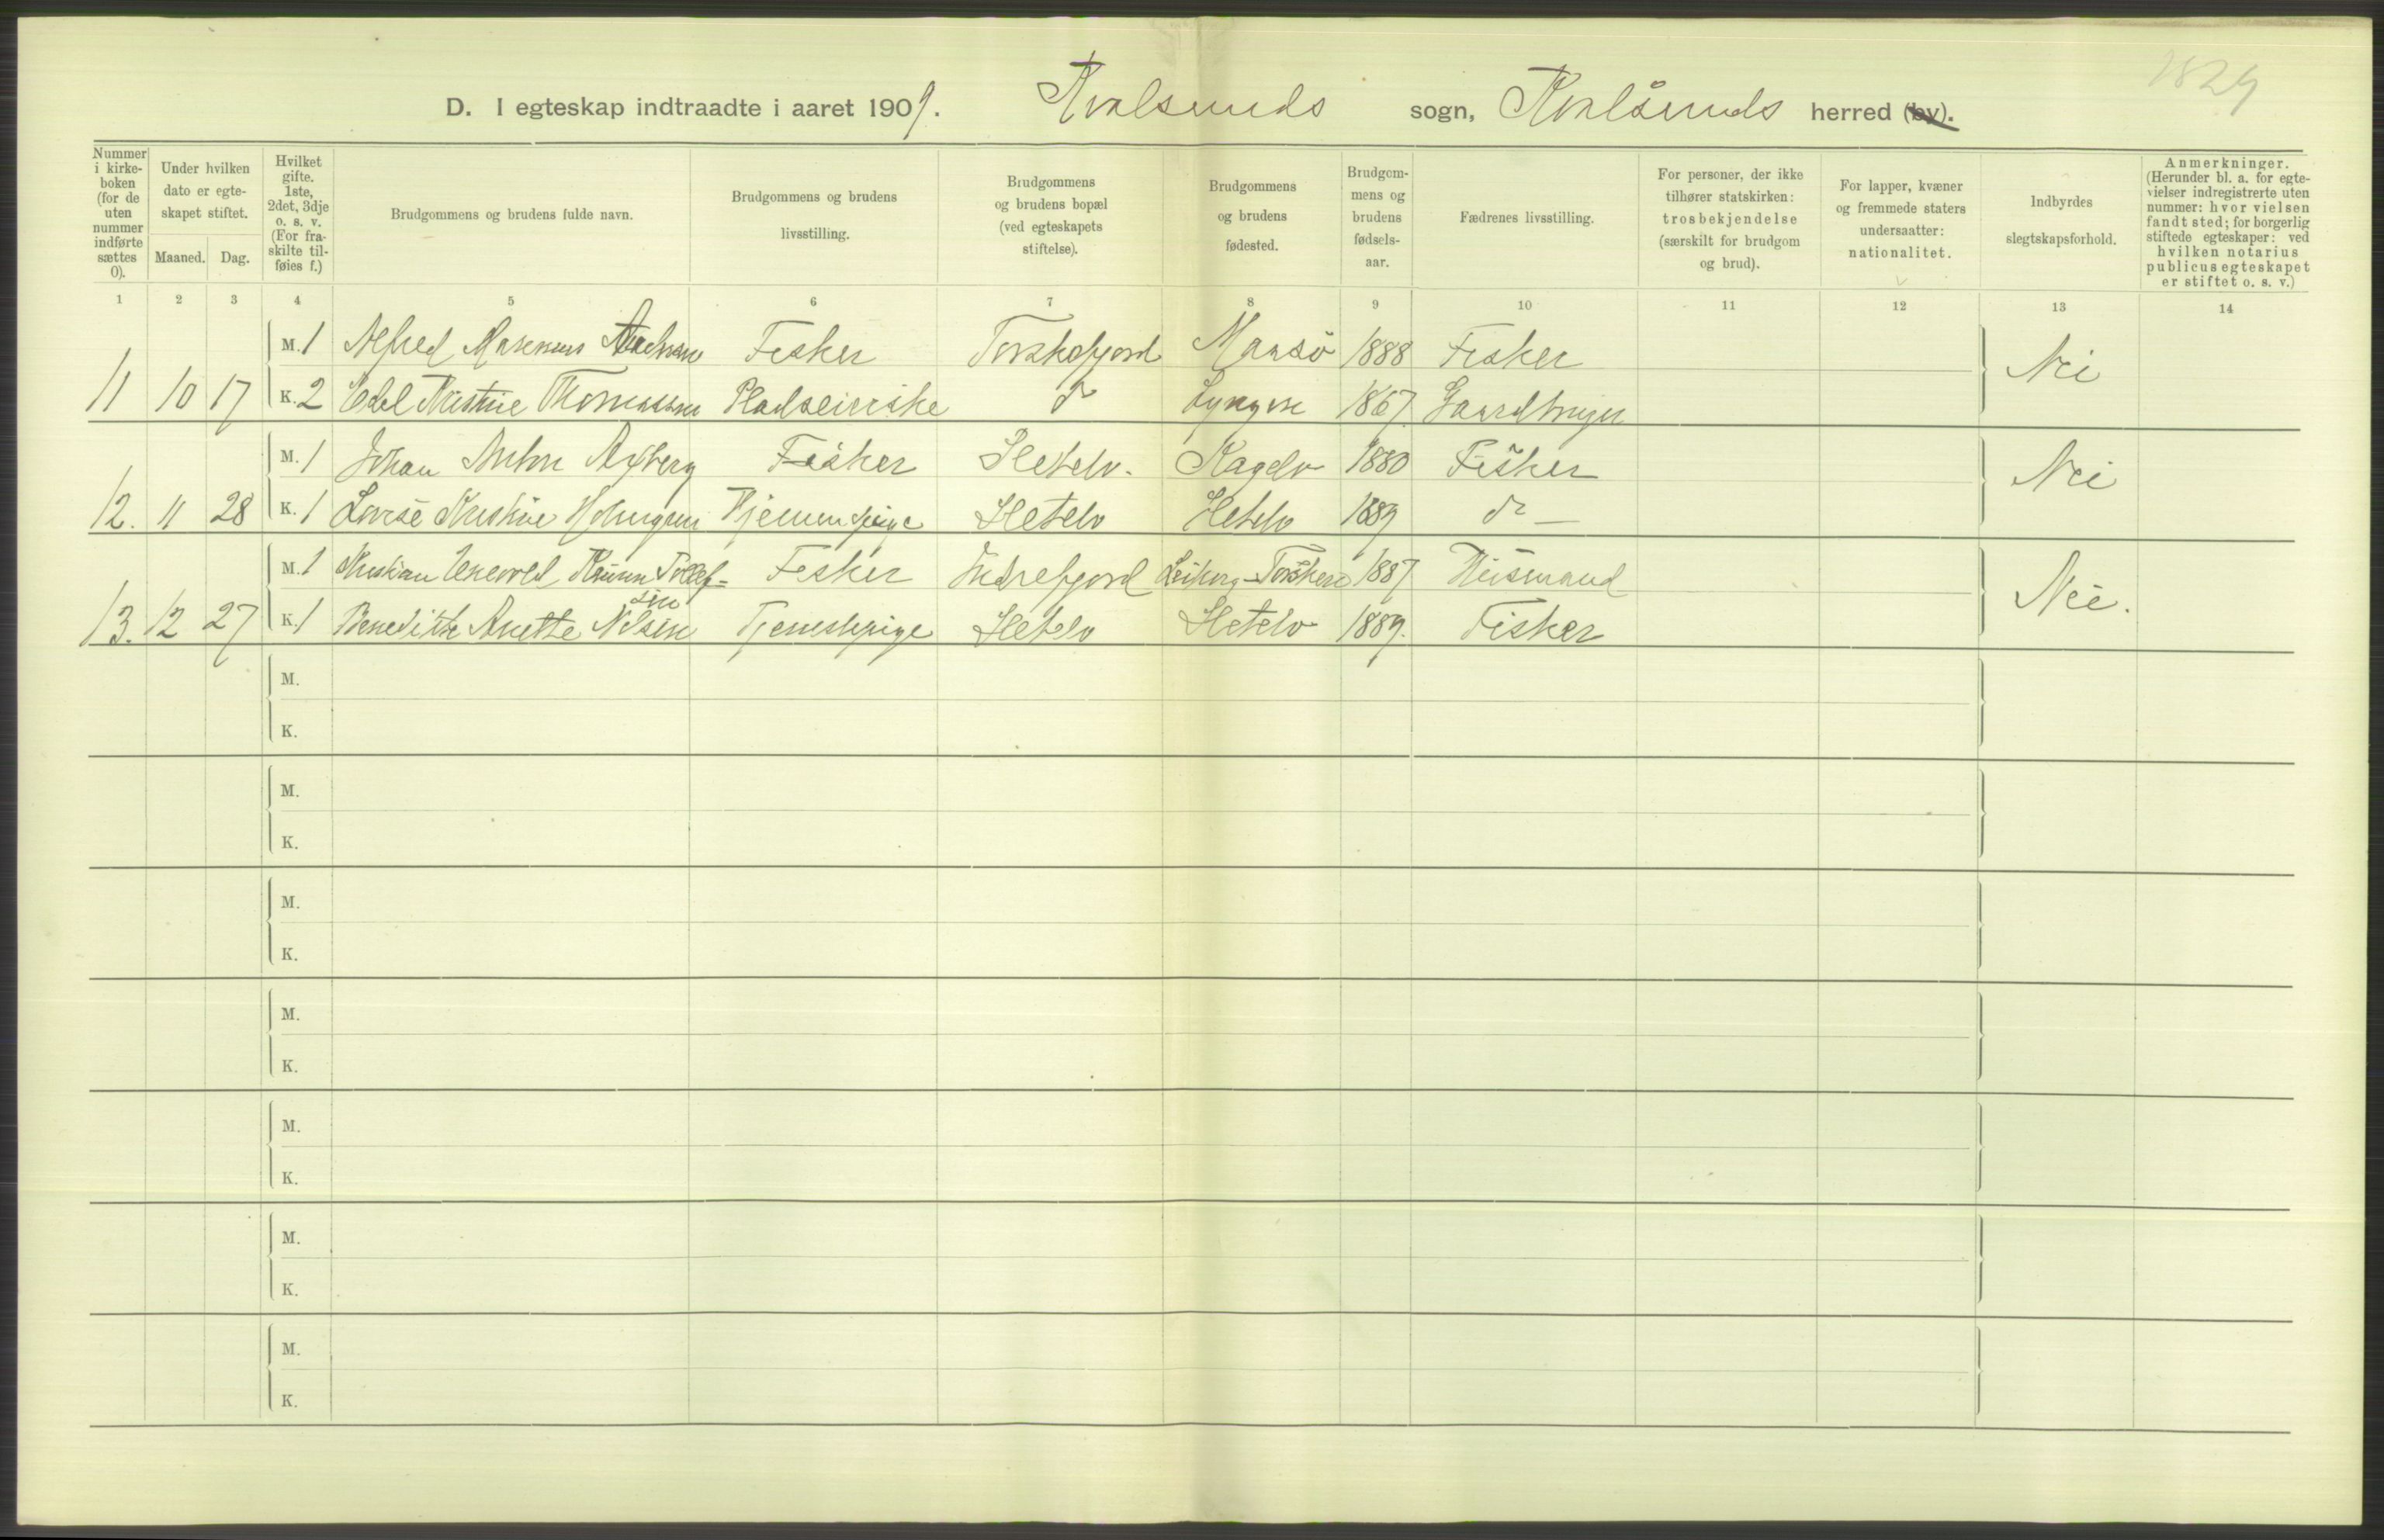 1829
D. I egteskap indtraadte i aaret 1909. Kvalsunds sogn, Kvalsunds herred (by).
Nummer i kirkeboken (for de uten nummer indførte sættes 0).
Under hvilken dato er egteskapet stiftet.
Maaned. Dag.
Hvilket gifte. 1ste, 2det, 3dje o. s. v. (For fraskilte tilføies f.)
Brudgommens og brudens fulde navn.
Brudgommens og brudens livsstilling.
Brudgommens og brudens bopæl (ved egteskapets stiftelse).
Brudgommens og brudens fødested.
Brudgommens og brudens fødselsaar.
Fædrenes livsstilling.
For personer, der ikke tilhører statskirken: trosbekjendelse (særskilt for brudgom og brud).
For lapper, kvæner og fremmede staters undersaatter: nationalitet.
Indbyrdes slegtskapsforhold.
Anmerkninger. (Herunder bl. a. for egtevielser indregistrerte uten nummer: hvor vielsen fandt sted; for borgerlig stiftede egteskaper: ved hvilken notarius publicus egteskapet er stiftet o. s. v.)
1 2 3 4 5 6 7 8 9 10 11 12 13 14
M. 1 Alfred Fisker Torskefjord Maasö 1888 Fisker Nei
11 10 17 K. 2 Edel Kristine Thomassen do Lyngen 1867 Gaardbruger
M. 1 Johan Anton Fisker Sletelv. Kagelv 1880 Fisker Nei
12. 11 28 K. 1 Lovise Kristine Holmgren Sletelv Sletelv 1889 do —
M. 1 Kristian Tollef- Fisker Indrefjord 1887 Husmand Nei.
sen
13. 12 27 K. 1 Benedikte Anette Nilsen Tjenestepige Sletelv Sletelv 1889. Fisker
M.
K.
M.
K.
M.
K.
M.
K.
M.
K.
M.
K.
M.
K.